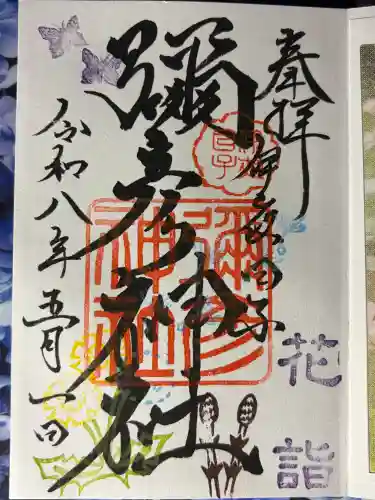 奉拝
彌彦神社
彌彦
神社
花詣
令和八年五月一日